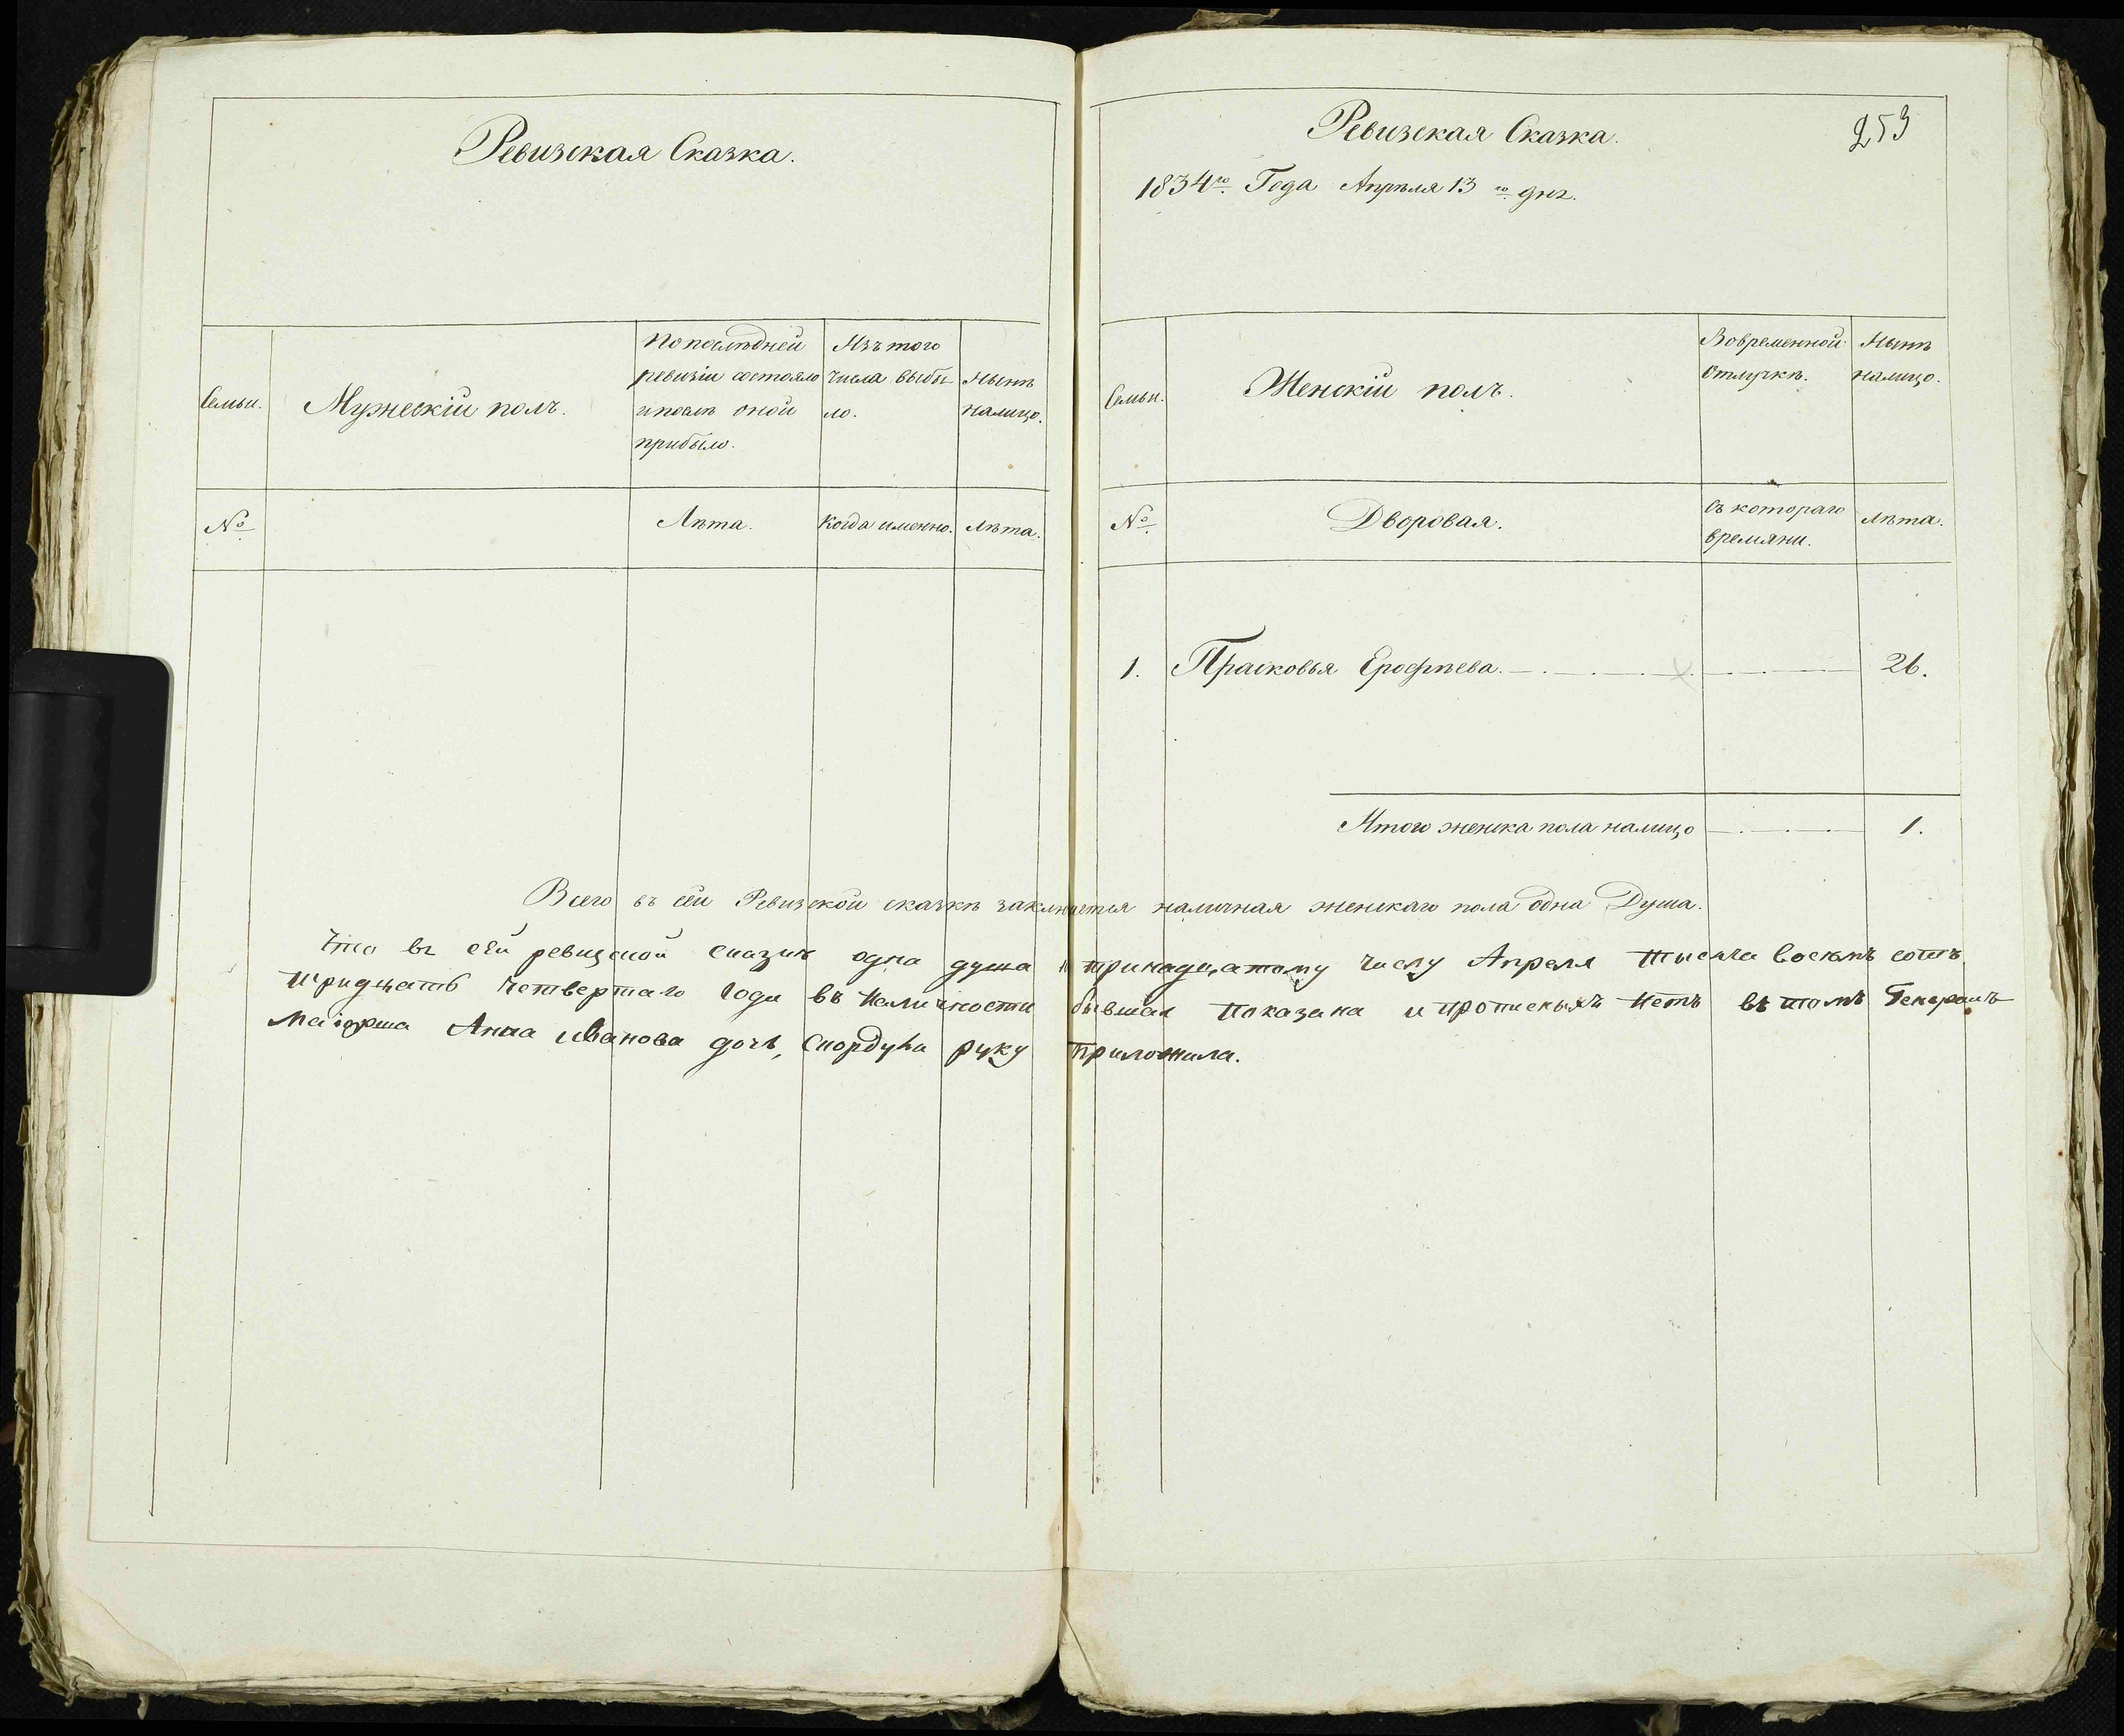 Ревизская Сказка.
Семьи.
Мужескій полъ.
По последней
ревизіи состояло
и после оной
прибыло.
Изъ того
числа выбы-
ло.
Нынѣ
налицо.
№
Лѣта.
Когда именно.
Лѣта.
253
Ревизская Сказка.
1834го Года Апрѣля 13го дня.
Семьи.
Женскій полъ.
Вовременной
отлучкѣ.
Нынѣ
налицо.
№
Дворовая.
Съ котораго
времяни.
Лѣта.
1. Прасковья Ерофѣева. 26.
Итого женска пола налицо 1.
Всего въ сей Ревизской сказкѣ заключается наличная женскаго пола одна Душа.
Что въ сей ревизской сказкѣ одна душа к тринадцатому числу Апреля тысяча восемъ сотъ
тридцать четвертаго года въ наличности бывшая показана и прописныхъ нетъ въ томъ Генералъ
Маіорша Анна Иванова дочь, руку приложила.